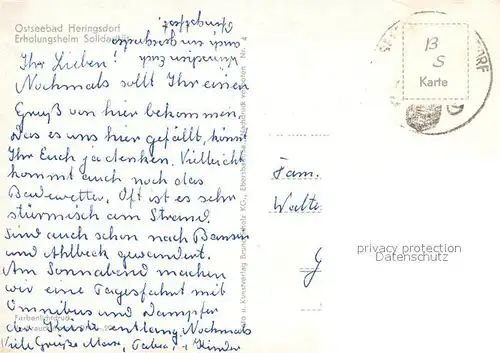 Ostseebad Heringsdorf
Erholungsheim Solidarität
Ihr Lieben!
Nochmals sollt Ihr einen
Gruß von hier bekommen.
Das es uns hier gefällt, könnt
Ihr Euch ja denken. Vielleicht
kommt auch noch das
Badewetter. Oft ist es sehr
stürmisch am Strand.
Sind auch schon nach Bansin
und Ahlbeck gewandert.
Am Sonnabend machen
wir eine Tagesfahrt mit
Omnibus und Dampfer
der Küste entlang. Nochmals
Viele Grüße Max, + Kinder
Farbenlichtdruck
u. Kunstverlag Brück KG., Ebersbach
verboten Nr. 4
B
S
Karte
DORF
Fam.
Walte
G
privacy protection
Datenschutz